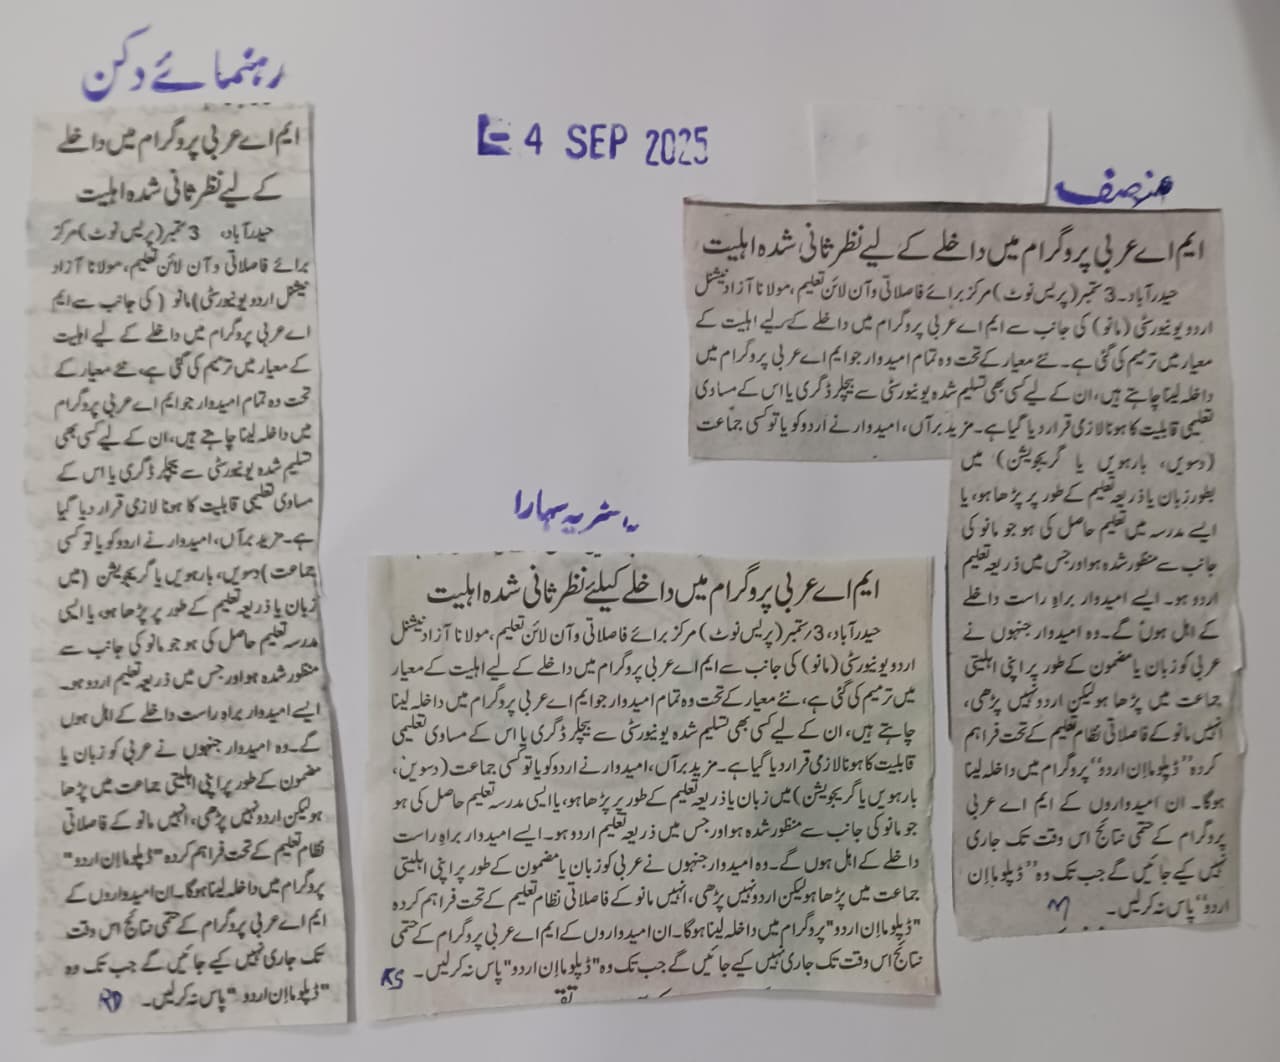 رہنمائے دکن
ایم اے عربی پروگرام میں داخلے
کے لیے نظر ثانی شدہ اہلیت
حیدرآباد، 3 ستمبر (پریس نوٹ) مرکز
برائے فاصلاتی و آن لائن تعلیم، مولانا آزاد
نیشنل اردو یونیورسٹی) مانو ( کی جانب سے ایم
اے عربی پروگرام میں داخلے کے لیے اہلیت
کے معیار میں ترمیم کی گئی ہے، نئے معیار کے
تحت وہ تمام امیدوار جو ایم اے عربی پروگرام
میں داخلہ لینا چاہتے ہیں، ان کے لیے کسی بھی
تسلیم شدہ یونیورسٹی سے بیچلر ڈگری یا اس کے
مساوی تعلیمی قابلیت کا ہونا لازمی قرار دیا گیا
ہے۔ مزید برآں، امیدوار نے اردو کو یا تو کسی
جماعت) دسویں، بارہویں یا گریجویشن (میں
زبان یا ذریعہ تعلیم کے طور پر پڑھا ہو، یا ایسی
مدرسہ تعلیم حاصل کی ہو جو مانو کی جانب سے
منظور شدہ ہو اور جس میں ذریعہ تعلیم اردو ہو۔
ایسے امیدوار براہِ راست داخلے کے اہل ہوں
گے۔ وہ امیدوار جنہوں نے عربی کو زبان یا
مضمون کے طور پر اپنی اہلیتی جماعت میں پڑھا
ہو لیکن اردو نہیں پڑھی، انہیں مانو کے فاصلاتی
نظام تعلیم کے تحت فراہم کردہ "ڈپلوما اِن اردو"
پروگرام میں داخلہ لینا ہوگا۔ ان امیدواروں کے
ایم اے عربی پروگرام کے حتمی نتائج اس وقت
تک جاری نہیں کیے جائیں گے جب تک وہ
"ڈپلوما اِن اردو" پاس نہ کرلیں۔ RD
- 4 SEP 2025
منصف
ایم اے عربی پروگرام میں داخلے کے لیے نظر ثانی شدہ اہلیت
حیدرآباد۔ 3 ستمبر (پریس نوٹ) مرکز برائے فاصلاتی و آن لائن تعلیم، مولانا آزاد نیشنل
اردو یونیورسٹی (مانو) کی جانب سے ایم اے عربی پروگرام میں داخلے کے لیے اہلیت کے
معیار میں ترمیم کی گئی ہے۔ نئے معیار کے تحت وہ تمام امیدوار جو ایم اے عربی پروگرام میں
داخلہ لینا چاہتے ہیں، ان کے لیے کسی بھی تسلیم شدہ یونیورسٹی سے بیچلر ڈگری یا اس کے مساوی
تعلیمی قابلیت کا ہونا لازمی قرار دیا گیا ہے۔ مزید برآں، امیدوار نے اردو کو یا تو کسی جماعت
(دسویں، بارہویں یا گریجویشن) میں
بطور زبان یا ذریعہ تعلیم کے طور پر پڑھا ہو، یا
ایسے مدرسہ میں تعلیم حاصل کی ہو جو مانو کی
جانب سے منظور شدہ ہو اور جس میں ذریعہ تعلیم
اردو ہو۔ ایسے امیدوار براہِ راست داخلے
کے اہل ہوں گے۔ وہ امیدوار جنہوں نے
عربی کو زبان یا مضمون کے طور پر اپنی اہلیتی
جماعت میں پڑھا ہو لیکن اردو نہیں پڑھی،
انہیں مانو کے فاصلاتی نظام تعلیم کے تحت فراہم
کردہ "ڈپلوما اِن اردو" پروگرام میں داخلہ لینا
ہوگا۔ ان امیدواروں کے ایم اے عربی
پروگرام کے حتمی نتائج اس وقت تک جاری
نہیں کیے جائیں گے جب تک وہ "ڈپلوما اِن
اردو" پاس نہ کرلیں۔ M
راشٹریہ سہارا
ایم اے عربی پروگرام میں داخلے کیلئے نظر ثانی شدہ اہلیت
حیدرآباد، 3/ستمبر (پریس نوٹ) مرکز برائے فاصلاتی و آن لائن تعلیم، مولانا آزاد نیشنل
اردو یونیورسٹی (مانو) کی جانب سے ایم اے عربی پروگرام میں داخلے کے لیے اہلیت کے معیار
میں ترمیم کی گئی ہے، نئے معیار کے تحت وہ تمام امیدوار جو ایم اے عربی پروگرام میں داخلہ لینا
چاہتے ہیں، ان کے لیے کسی بھی تسلیم شدہ یونیورسٹی سے بیچلر ڈگری یا اس کے مساوی تعلیمی
قابلیت کا ہونا لازمی قرار دیا گیا ہے۔ مزید برآں، امیدوار نے اردو کو یا تو کسی جماعت (دسویں،
بارہویں یا گریجویشن) میں زبان یا ذریعہ تعلیم کے طور پر پڑھا ہو، یا ایسی مدرسہ تعلیم حاصل کی ہو
جو مانو کی جانب سے منظور شدہ ہو اور جس میں ذریعہ تعلیم اردو ہو۔ ایسے امیدوار براہِ راست
داخلے کے اہل ہوں گے۔ وہ امیدوار جنہوں نے عربی کو زبان یا مضمون کے طور پر اپنی اہلیتی
جماعت میں پڑھا ہو لیکن اردو نہیں پڑھی، انہیں مانو کے فاصلاتی نظام تعلیم کے تحت فراہم کردہ
"ڈپلوما اِن اردو" پروگرام میں داخلہ لینا ہوگا۔ ان امیدواروں کے ایم اے عربی پروگرام کے حتمی
نتائج اس وقت تک جاری نہیں کیے جائیں گے جب تک وہ "ڈپلوما اِن اردو" پاس نہ کرلیں۔ RS